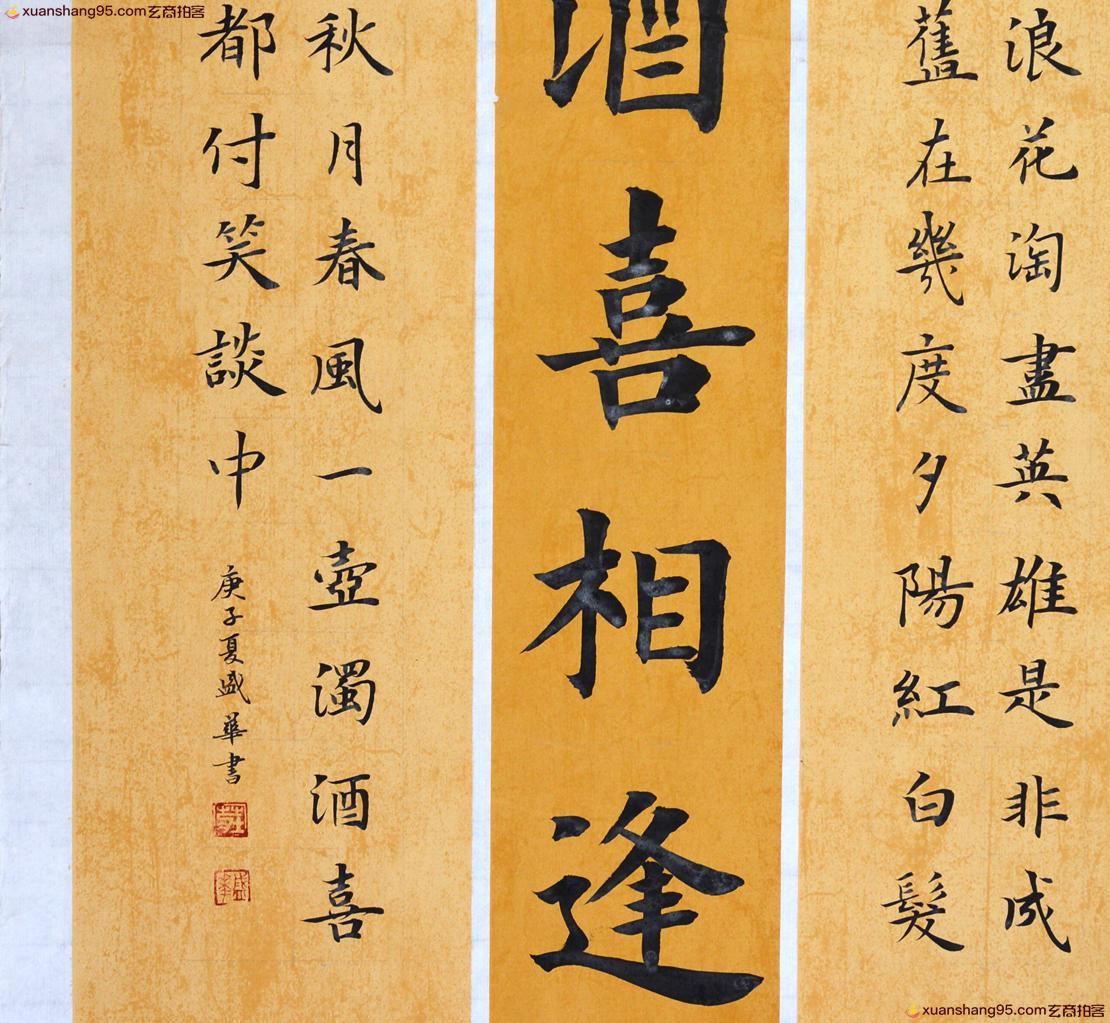 xuanshang95.com玄商拍客
浪花淘盡英雄是非成
舊在幾度夕陽紅白髮
酒喜相逢
秋月春風一壺濁酒喜
都付笑談中
庚子夏盛華書
xuanshang95.com玄商拍客